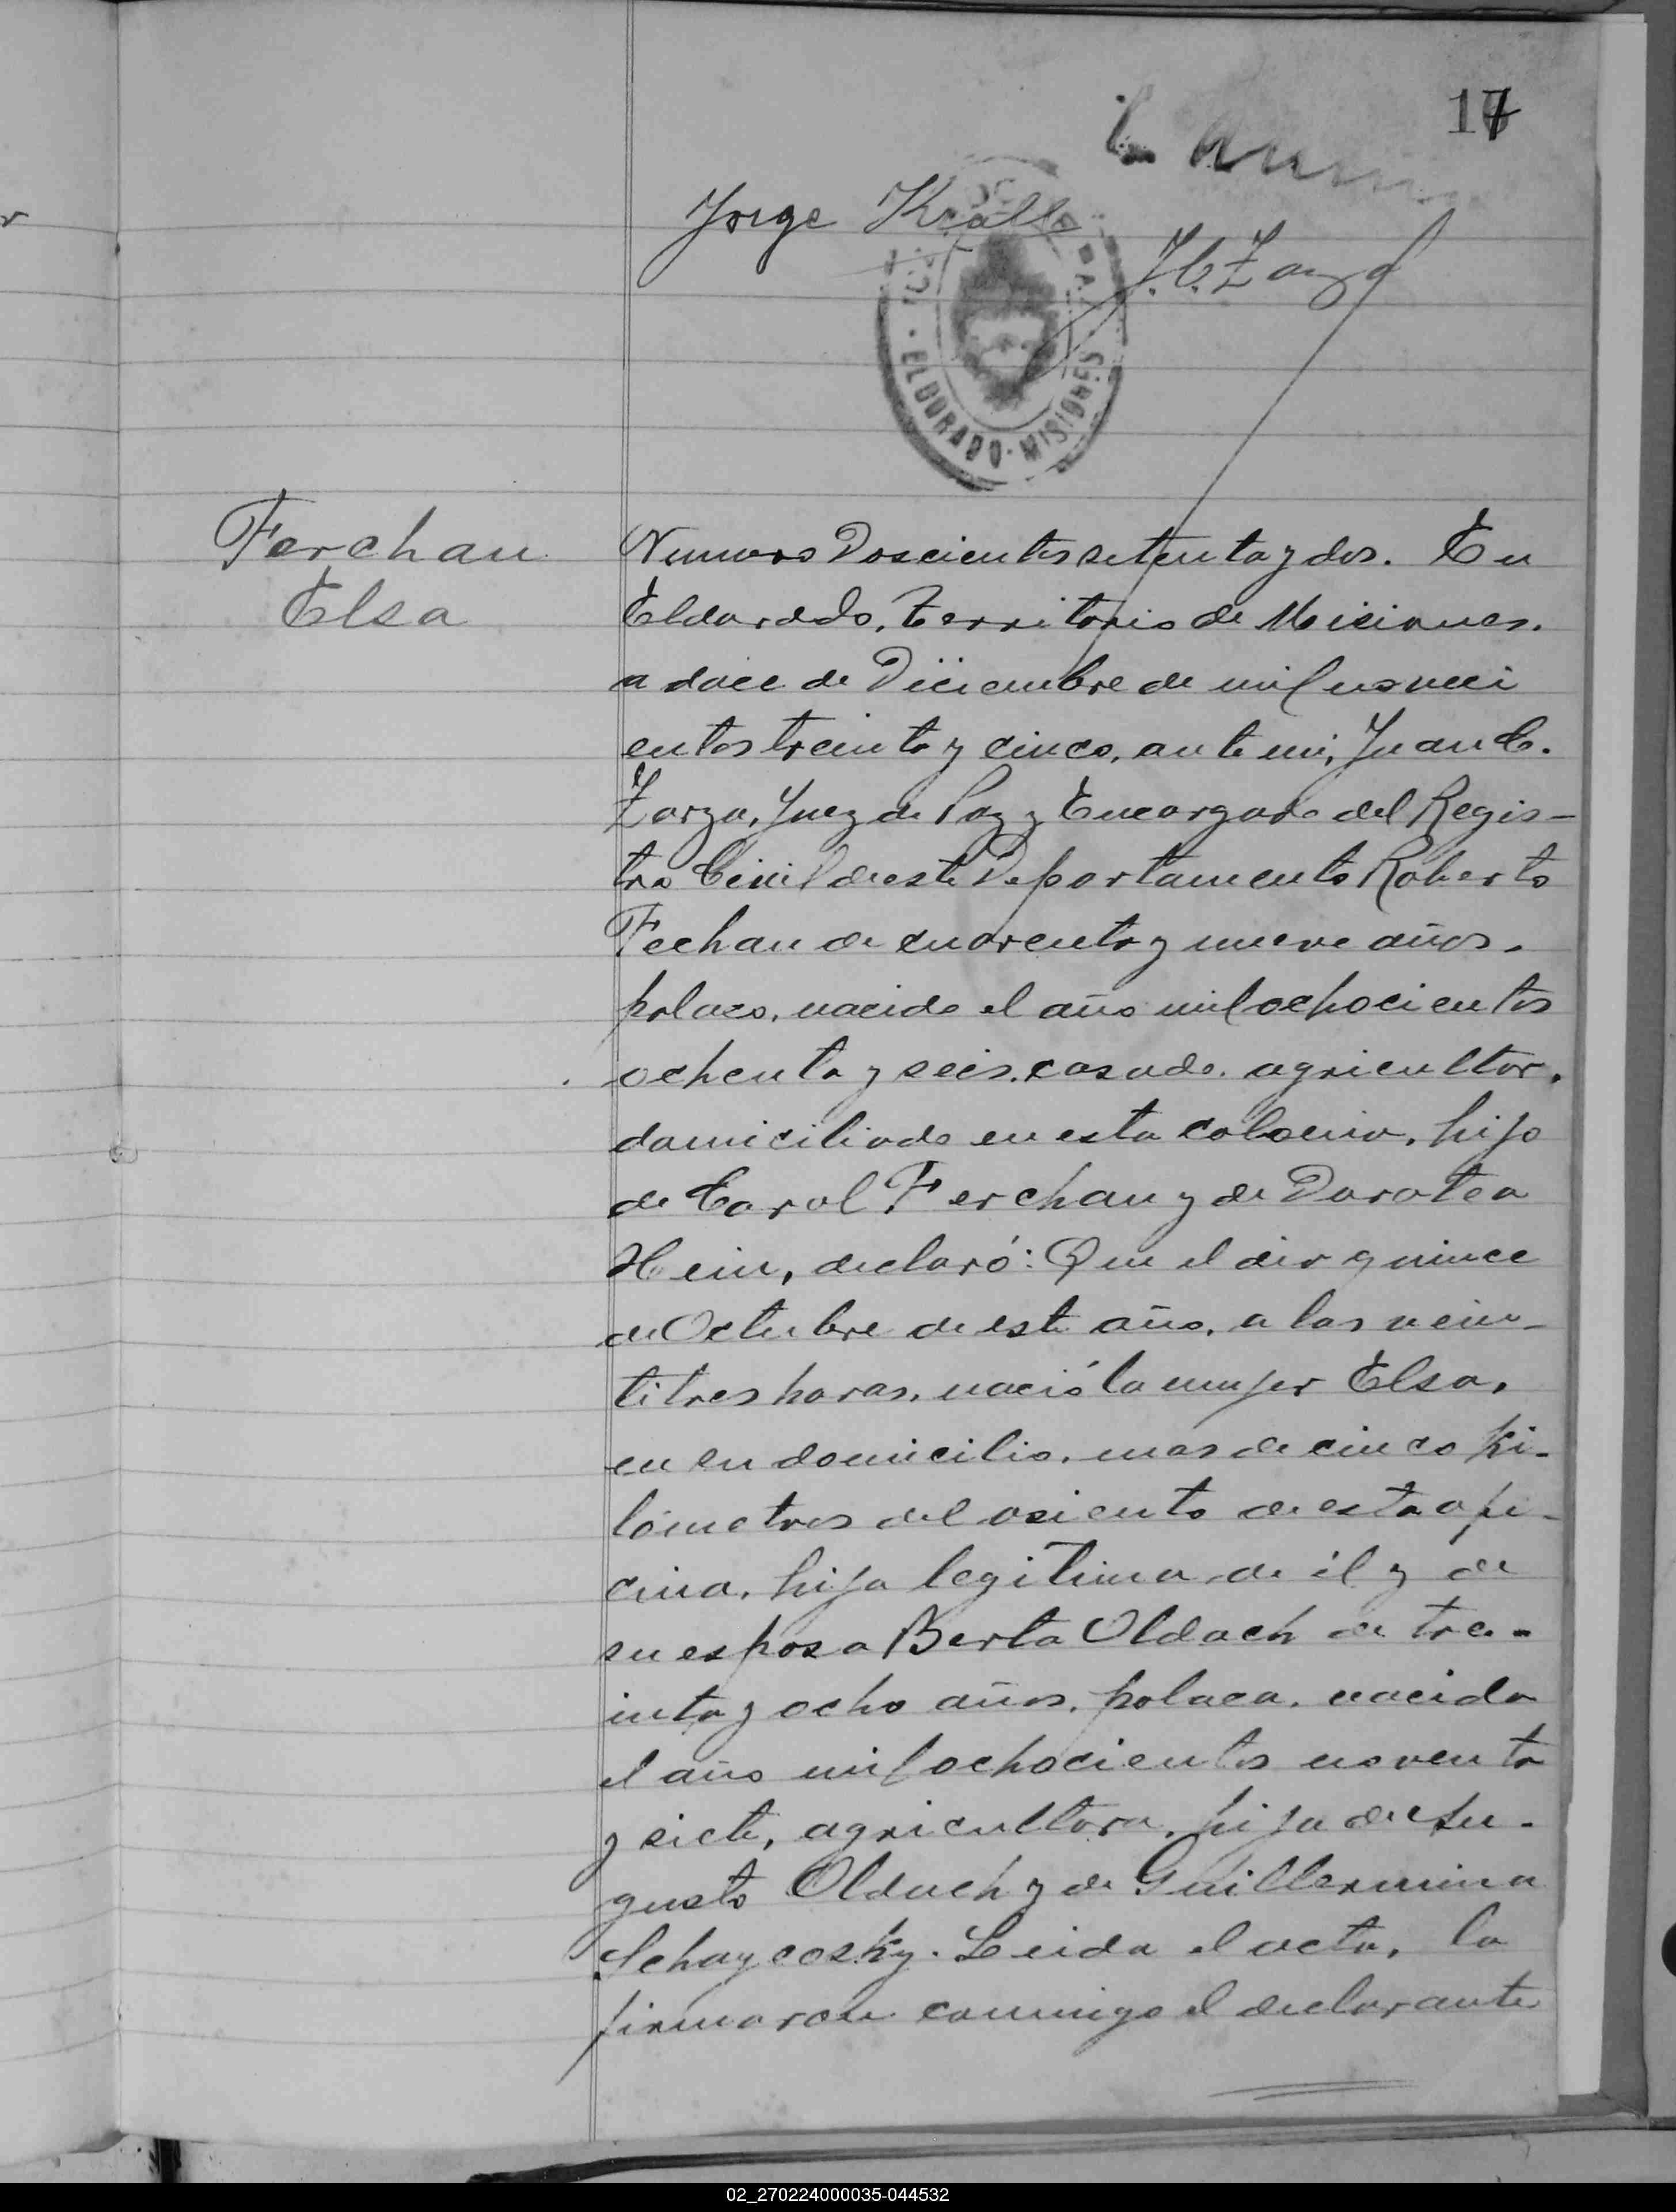 17
Jorge Krall
J.C. Zarza
ELDORADO · MISIONES
Ferchau
Elsa
Numero Doscientos setenta y dos. En
Eldorado, Territorio de Misiones.
a doce de Diciembre de mil noveci
entos treinta y cinco, ante mi, Juan C.
Zarza, Juez de Paz y Encargado del Regis-
tro Civil de este Departamento Roberto
Fechau de cuarenta y nueve años.
polaco, nacido el año mil ochocientos
ochenta y seis, casado, agricultor,
domiciliado en esta colonia, hijo
de Carol Ferchau y de Dorotea
Hein, declaró: Que el dia quince
de Octubre de este año, a las vein-
titres horas, nació la mujer Elsa,
en su domicilio, mas de cinco ki-
lómetros del asiento de esta ofi-
cina, hija legitima de él y de
su esposa Berta Oldach de tre-
inta y ocho años, polaca, nacida
el año mil ochocientos noventa
y siete, agricultora, hija de Au-
gusto Oldach y de Guillermina
Schaycosky. Leida el acta, la
firmaron conmigo el declarante
02_270224000035-044532